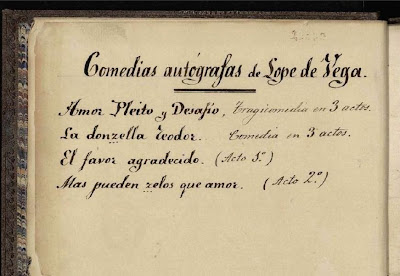 Comedias autógrafas de Lope de Vega.
Amor Pleito y Desafío, Tragicomedia en 3 actos.
La donzella Teodor. Comedia en 3 actos.
El favor agradecido. (Acto 3º)
Mas pueden zelos que amor. (Acto 2º)